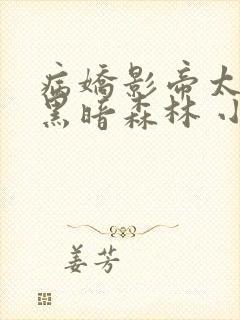 病嬌影帝太
黑暗森林 小
姜芳